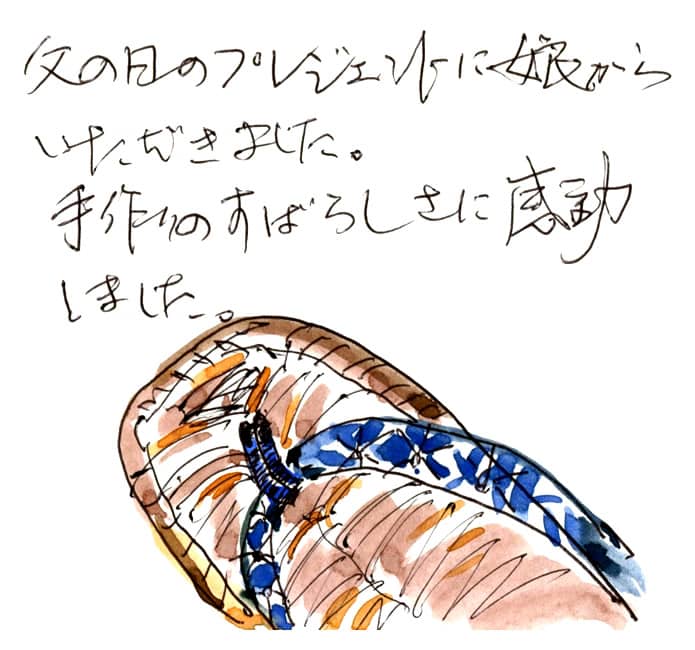 父の日のプレジェントに娘から
いただきました。
手作りのすばらしさに感動
しました。